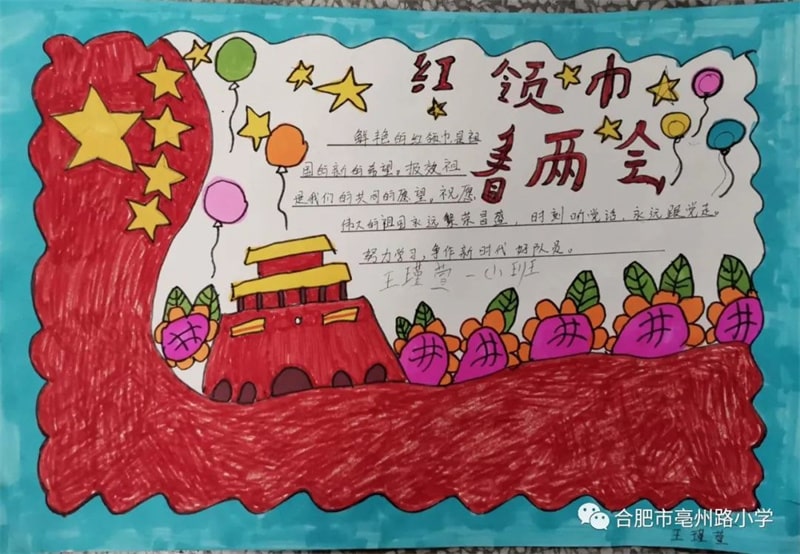 红领巾
看两会
鲜艳的红领巾是祖
国的新的希望。报效祖
是我们的共同的愿望。祝愿
伟大的祖国永远繁荣昌盛,时刻听党话、永远跟党走。
努力学习,争作新时代好队员。
王瑾萱 一 班
合肥市亳州路小学
王瑾萱